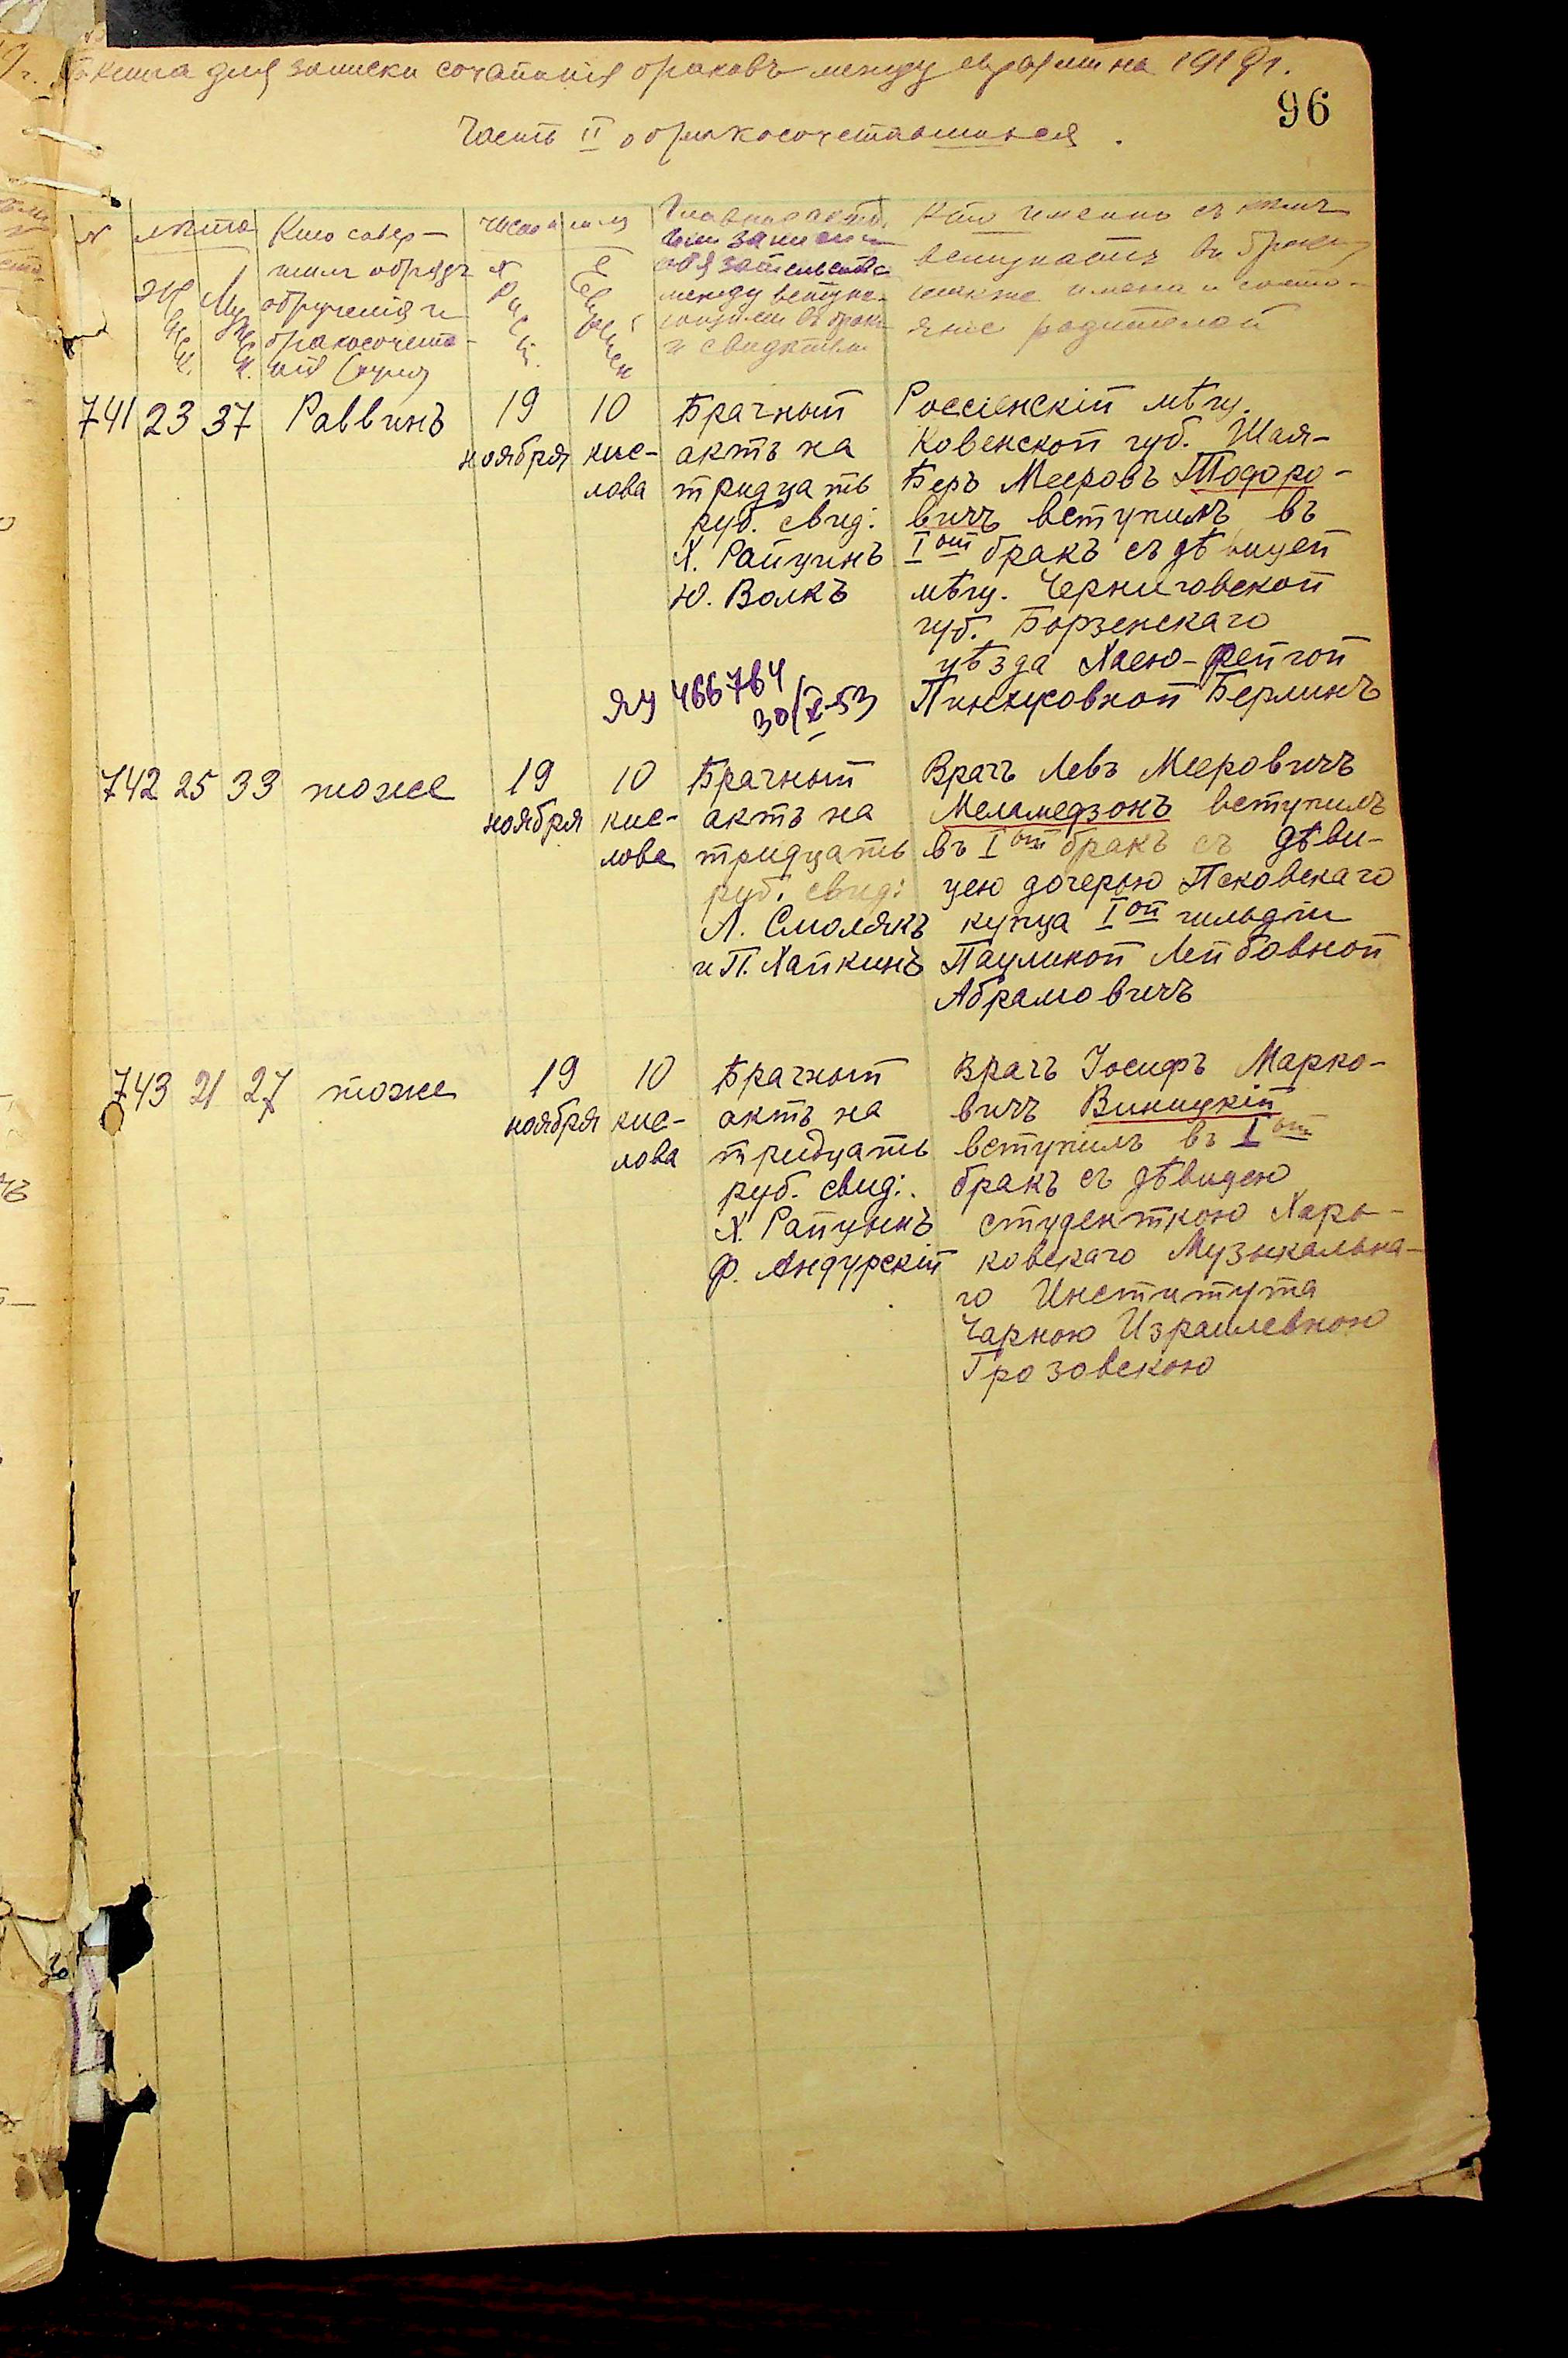 Книга для записки сочетанія браковъ между евреями на 1919 г.
96
Часть II о бракосочетавшихся.
№ лѣта Кто совер-
шал обрядъ
обрученія и
бракосочета-
нія
Женск. Мужск.
Число и
Христ.
Еврейск.
Главные акты
или записи и
обязательства
между вступа-
ющими въ бракъ
и свидѣтели
Кто именно съ кѣмъ
вступаетъ въ бракъ,
также имена и состо-
яніе родителей
741 23 37 Раввинъ
19
ноября
10
кис-
лова
Брачный
актъ на
тридцать
руб. свид:
Х. Райцинъ
Ю. Волкъ
Россіенскій мѣщ.
Ковенской губ. Шая-
Беръ Мееровъ Тодоро-
вичъ вступилъ въ
Iый бракъ съ дѣвицей
мѣщ. Черниговской
губ. Борзенскаго
уѣзда Хаею-Фейгой
Пинкусовной Берлинъ
ЯЧ 466764
30/X-53
742 25 33 тоже
19
ноября
10
кис-
лова
Брачный
актъ на
тридцать
руб. свид:
Л. Смолякъ
и П. Хайкинъ
Врачъ Левъ Мееровичъ
Меламедзонъ вступилъ
въ Iый бракъ съ дѣви-
цею дочерью Псковскаго
купца Iой гильдіи
Паулиной Лейбовной
Абрамовичъ
743 21 27 тоже
19
ноября
10
кис-
лова
Брачный
актъ на
тридцать
руб. свид:.
Х. Райцинъ
Ф. Андурскій
Врачъ Іосифъ Марко-
вичъ Виницкій
вступилъ въ Iый
бракъ съ дѣвицею
студенткою Харь-
ковскаго Музыкальна-
го Института
Чарною Израилевною
Грозовскою